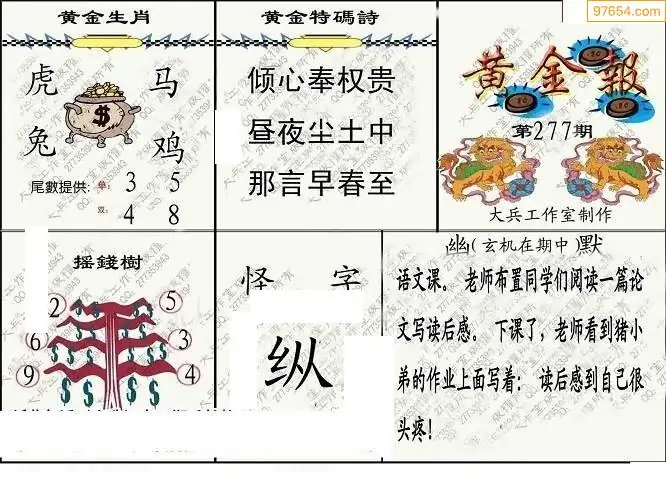 97654.com
黄金生肖
虎 马
兔 鸡
$
尾數提供: 单: 3 5
双: 4 8
黄金特碼詩
倾心奉权贵
昼夜尘土中
那言早春至
黄金報
第277期
大兵工作室制作
摇錢樹
2 5
6 3
9 4
怪 字
纵
幽(玄机在期中)默
语文课。老师布置同学们阅读一篇论
文写读后感。下课了，老师看到猪小
弟的作业上面写着：读后感到自己很
头疼!